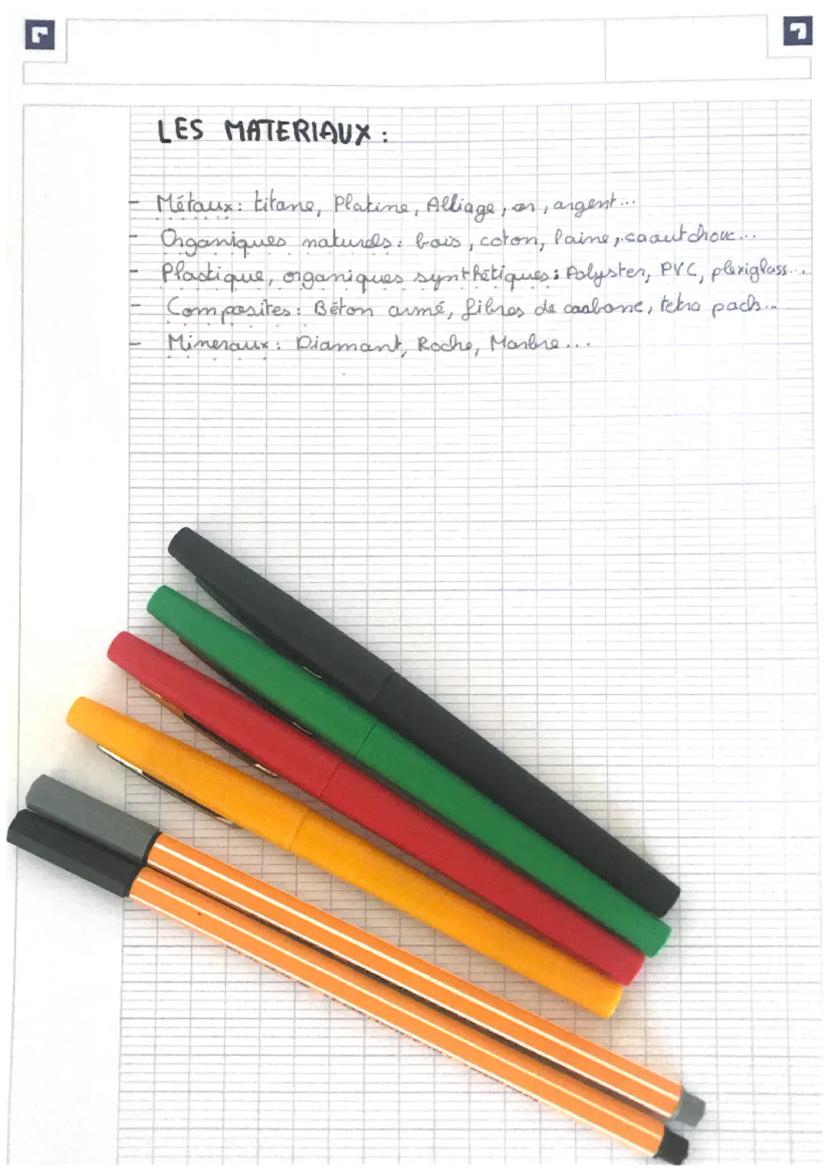 LES MATERIAUX :
- Métaux : titane, Platine, Alliage, or, argent...
- Organiques naturels : bois, coton, laine, caoutchouc...
- Plastique, organiques synthétiques : Polyster, PVC, plexiglass...
- Composites : Béton armé, fibres de carbone, tetra pack...
- Mineraux : Diamant, Roche, Marbre...